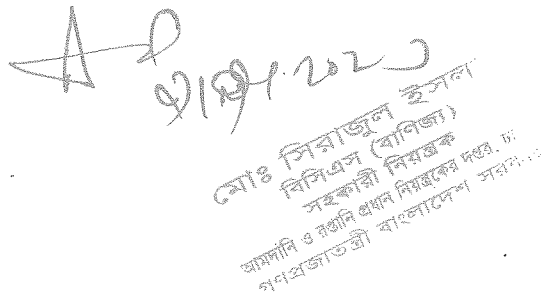 মোঃ সিরাজুল ইসল
বিসিএস (বাণিজ্য)
সহকারী নিয়ন্ত্রক
আমদানি ও রপ্তানি প্রধান নিয়ন্ত্রকের দপ্তর, ঢা
গণপ্রজাতন্ত্রী বাংলাদেশ সরকা